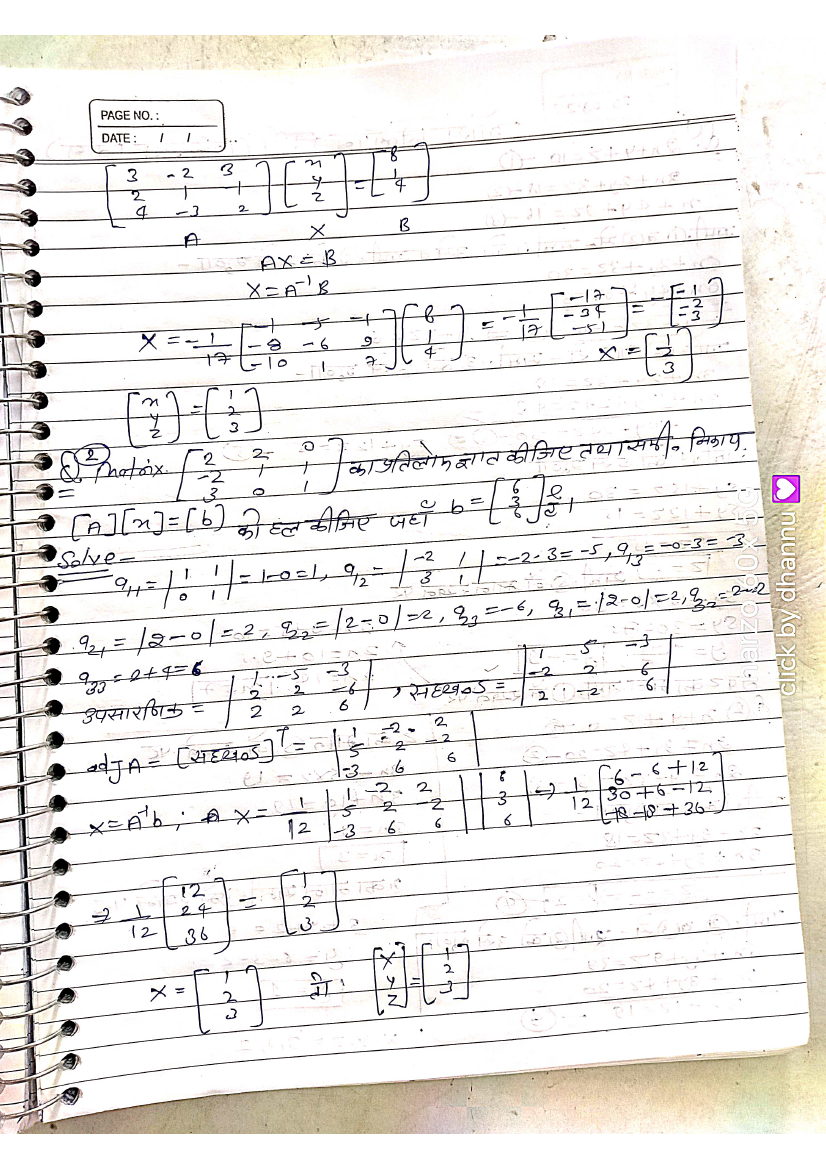 PAGE NO. :
DATE : / /
[3 -2 3; 2 1 -1; 4 -3 2] [x; y; z] = [8; 1; 4]
A X B
AX = B
X = A⁻¹ B
X = -1/17 [-1 -5 -1; -8 -6 9; -10 1 7] [8; 1; 4] = -1/17 [-17; -34; -51] = -[-1; -2; -3]
X = [1; 2; 3]
[x; y; z] = [1; 2; 3]
Q. 2 Matrix [2 2 0; -2 1 1; 3 0 1] का प्रतिलोम ज्ञात कीजिए तथा समी. निकाय
[A][x] = [b] को हल कीजिए जहाँ b = [6; 3; 6] है।
Solve -
a11 = |1 1; 0 1| = 1-0 = 1, a12 = |-2 1; 3 1| = -2-3 = -5, a13 = -0-3 = -3
a21 = |2-0| = 2, a22 = |2-0| = 2, a23 = -6, a31 = |2-0| = 2, a32 = 2-2
a33 = 2+4 = 6
उपसारणिक = |1 -5 -3; 2 2 -6; 2 2 6|, सहखण्ड = |1 5 -3; -2 2 6; 2 -2 6|
adj A = [सहखण्ड]ᵀ = |1 -2 2; 5 2 -2; -3 6 6|
x = A⁻¹b ; X = 1/12 |1 -2 2; 5 2 -2; -3 6 6| |6; 3; 6| ⇒ 1/12 [6-6+12; 30+6-12; -18-18+36]
⇒ 1/12 [12; 24; 36] = [1; 2; 3]
X = [1; 2; 3] [x; y; z] = [1; 2; 3]
click by dhannu